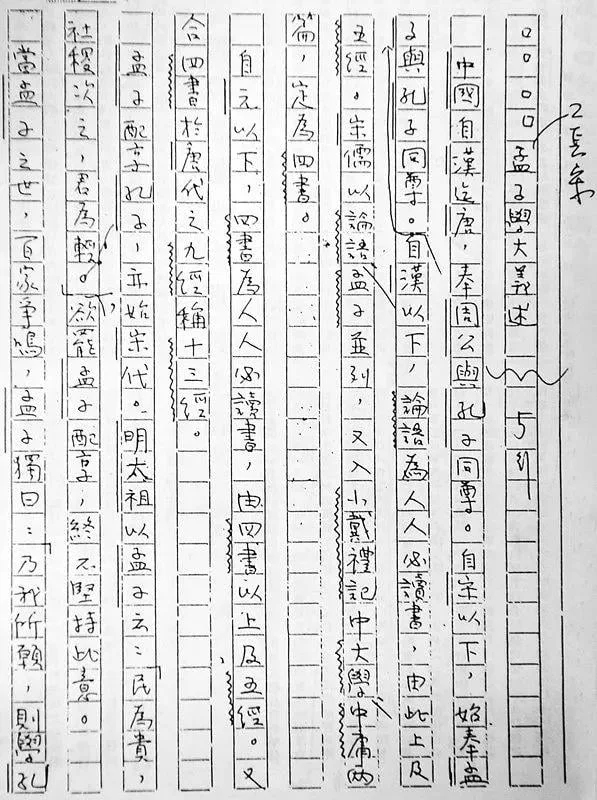 2頁宋
○○○○孟子學大義述　5行
中國自漢迄唐，奉周公與孔子同尊。自宋以下，始奉孟
子與孔子同尊。自漢以下，論語為人人必讀書，由此上及
五經。宋儒以論語孟子並列，又入小戴禮記中大學中庸兩
篇，定為四書。
自元以下，四書為人人必讀書，由四書以上及五經。又
合四書於唐代之九經稱十三經。
孟子配享孔子，亦始宋代。明太祖以孟子云：「民為貴，
社稷次之，君為輕。」欲罷孟子配享，終不堅持此意。
當孟子之世，百家爭鳴，孟子獨曰：「乃我所願，則學孔